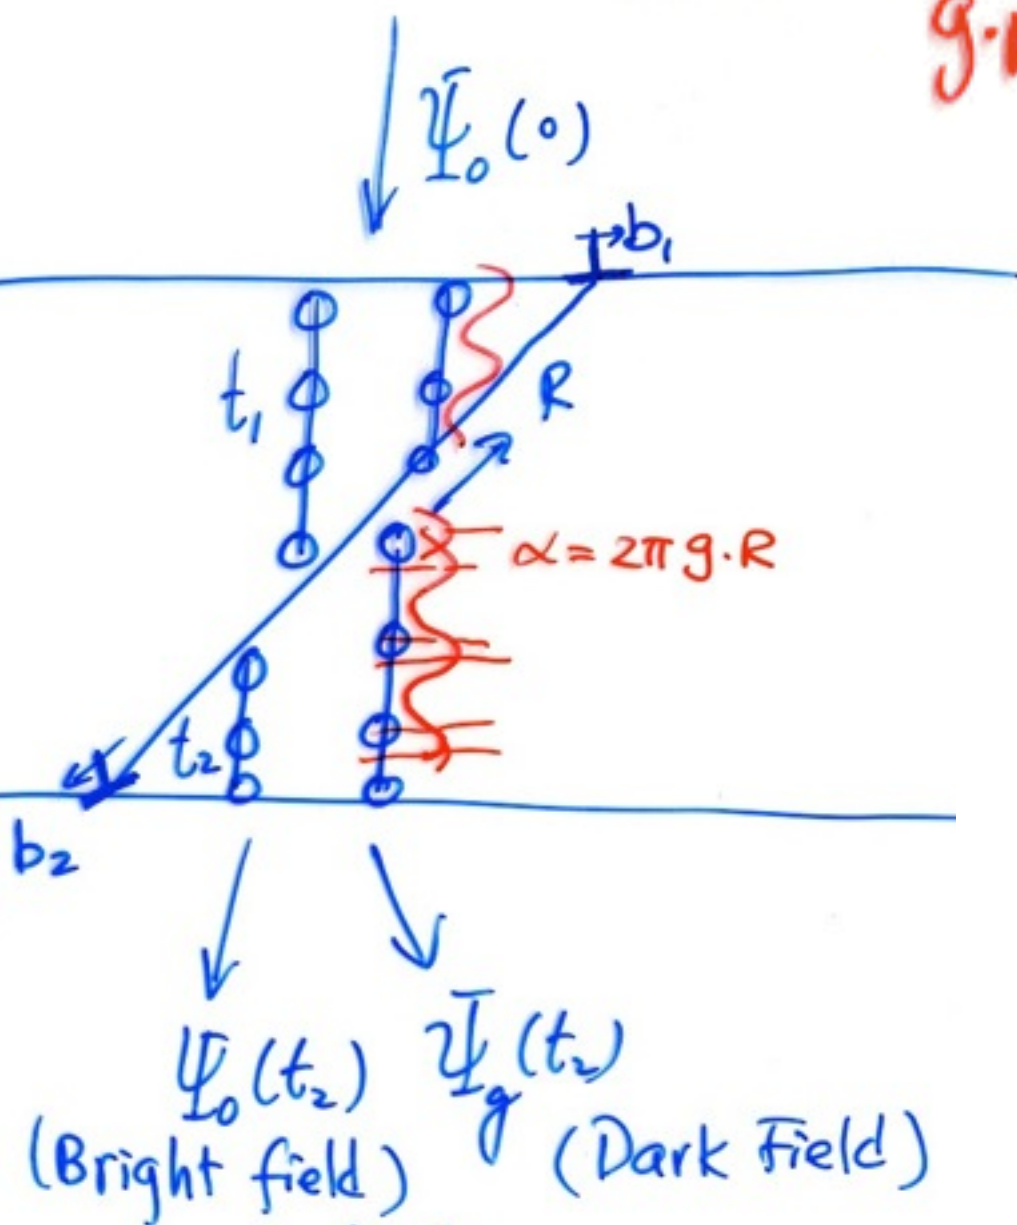 g.
Ψ₀(0)
b₁
t₁
R
α=2πg·R
t₂
b₂
Ψ₀(t₂) Ψg(t₂)
(Bright field) (Dark Field)